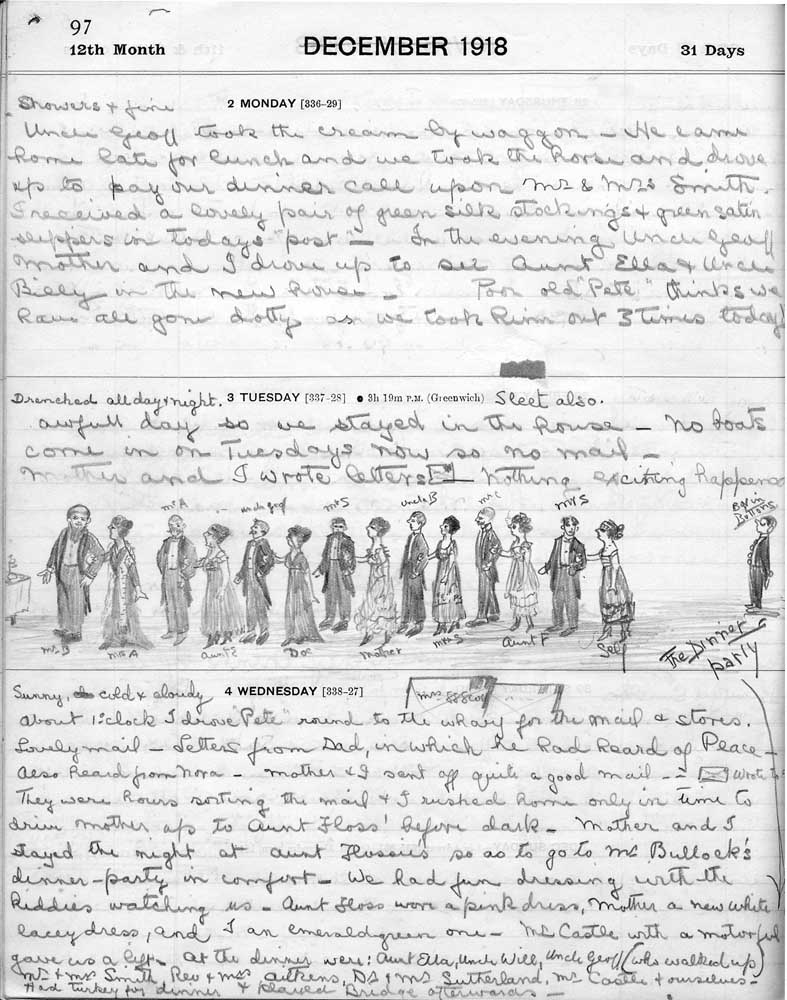 97
12th Month DECEMBER 1918 31 Days
Showers & fine 2 MONDAY [336-29]
Uncle Geoff took the cream by waggon – He came
home late for lunch and we took the horse and drove
up to pay our dinner call upon Mr & Mrs Smith.
I received a lovely pair of green silk stockings & green satin
slippers in todays "post" – In the evening Uncle Geoff
Mother and I drove up to see Aunt Ella & Uncle
Billy in the new house – Poor old "Pete" thinks we
have all gone dotty as we took him out 3 times today!
Drenched all day & night. 3 TUESDAY [337-28] ● 3h 19m P.M. (Greenwich) Sleet also.
awfull day so we stayed in the house – No boats
come in on Tuesdays now so no mail –
Mother and I wrote letters – Nothing exciting happened
Mr A uncle geof Mr S uncle B Mr C Mr S Boy in
Buttons
Mr B Mrs A Aunt E Doc Mother Mrs S Aunt F Self
The Dinner
party
Sunny, cold & cloudy 4 WEDNESDAY [338-27] Mrs
about 1 o'clock I drove "Pete" round to the wharf for the mail & stores.
Lovely mail – Letters from Dad, in which he had heard of Peace –
Also heard from Nora – Mother & I sent off quite a good mail – Wrote to
They were hours sorting the mail & I rushed home only in time to
drive Mother up to Aunt Floss' before dark – Mother and I
stayed the night at Aunt Flossie's so as to go to Mr Bullock's
dinner-party in comfort – We had fun dressing with the
kiddies watching us – Aunt Floss wore a pink dress, Mother a new white
lacey dress, and I an emerald green one – Mr Castle with a motor ful
gave us a lift – At the dinner were: Aunt Ella, Uncle Will, Uncle Geoff (who walked up)
Mr & Mrs Smith, Rev & Mrs Aitkens, Dr & Mrs Sutherland, Mr Castle & ourselves –
Had turkey for dinner & played Bridge afterwards –